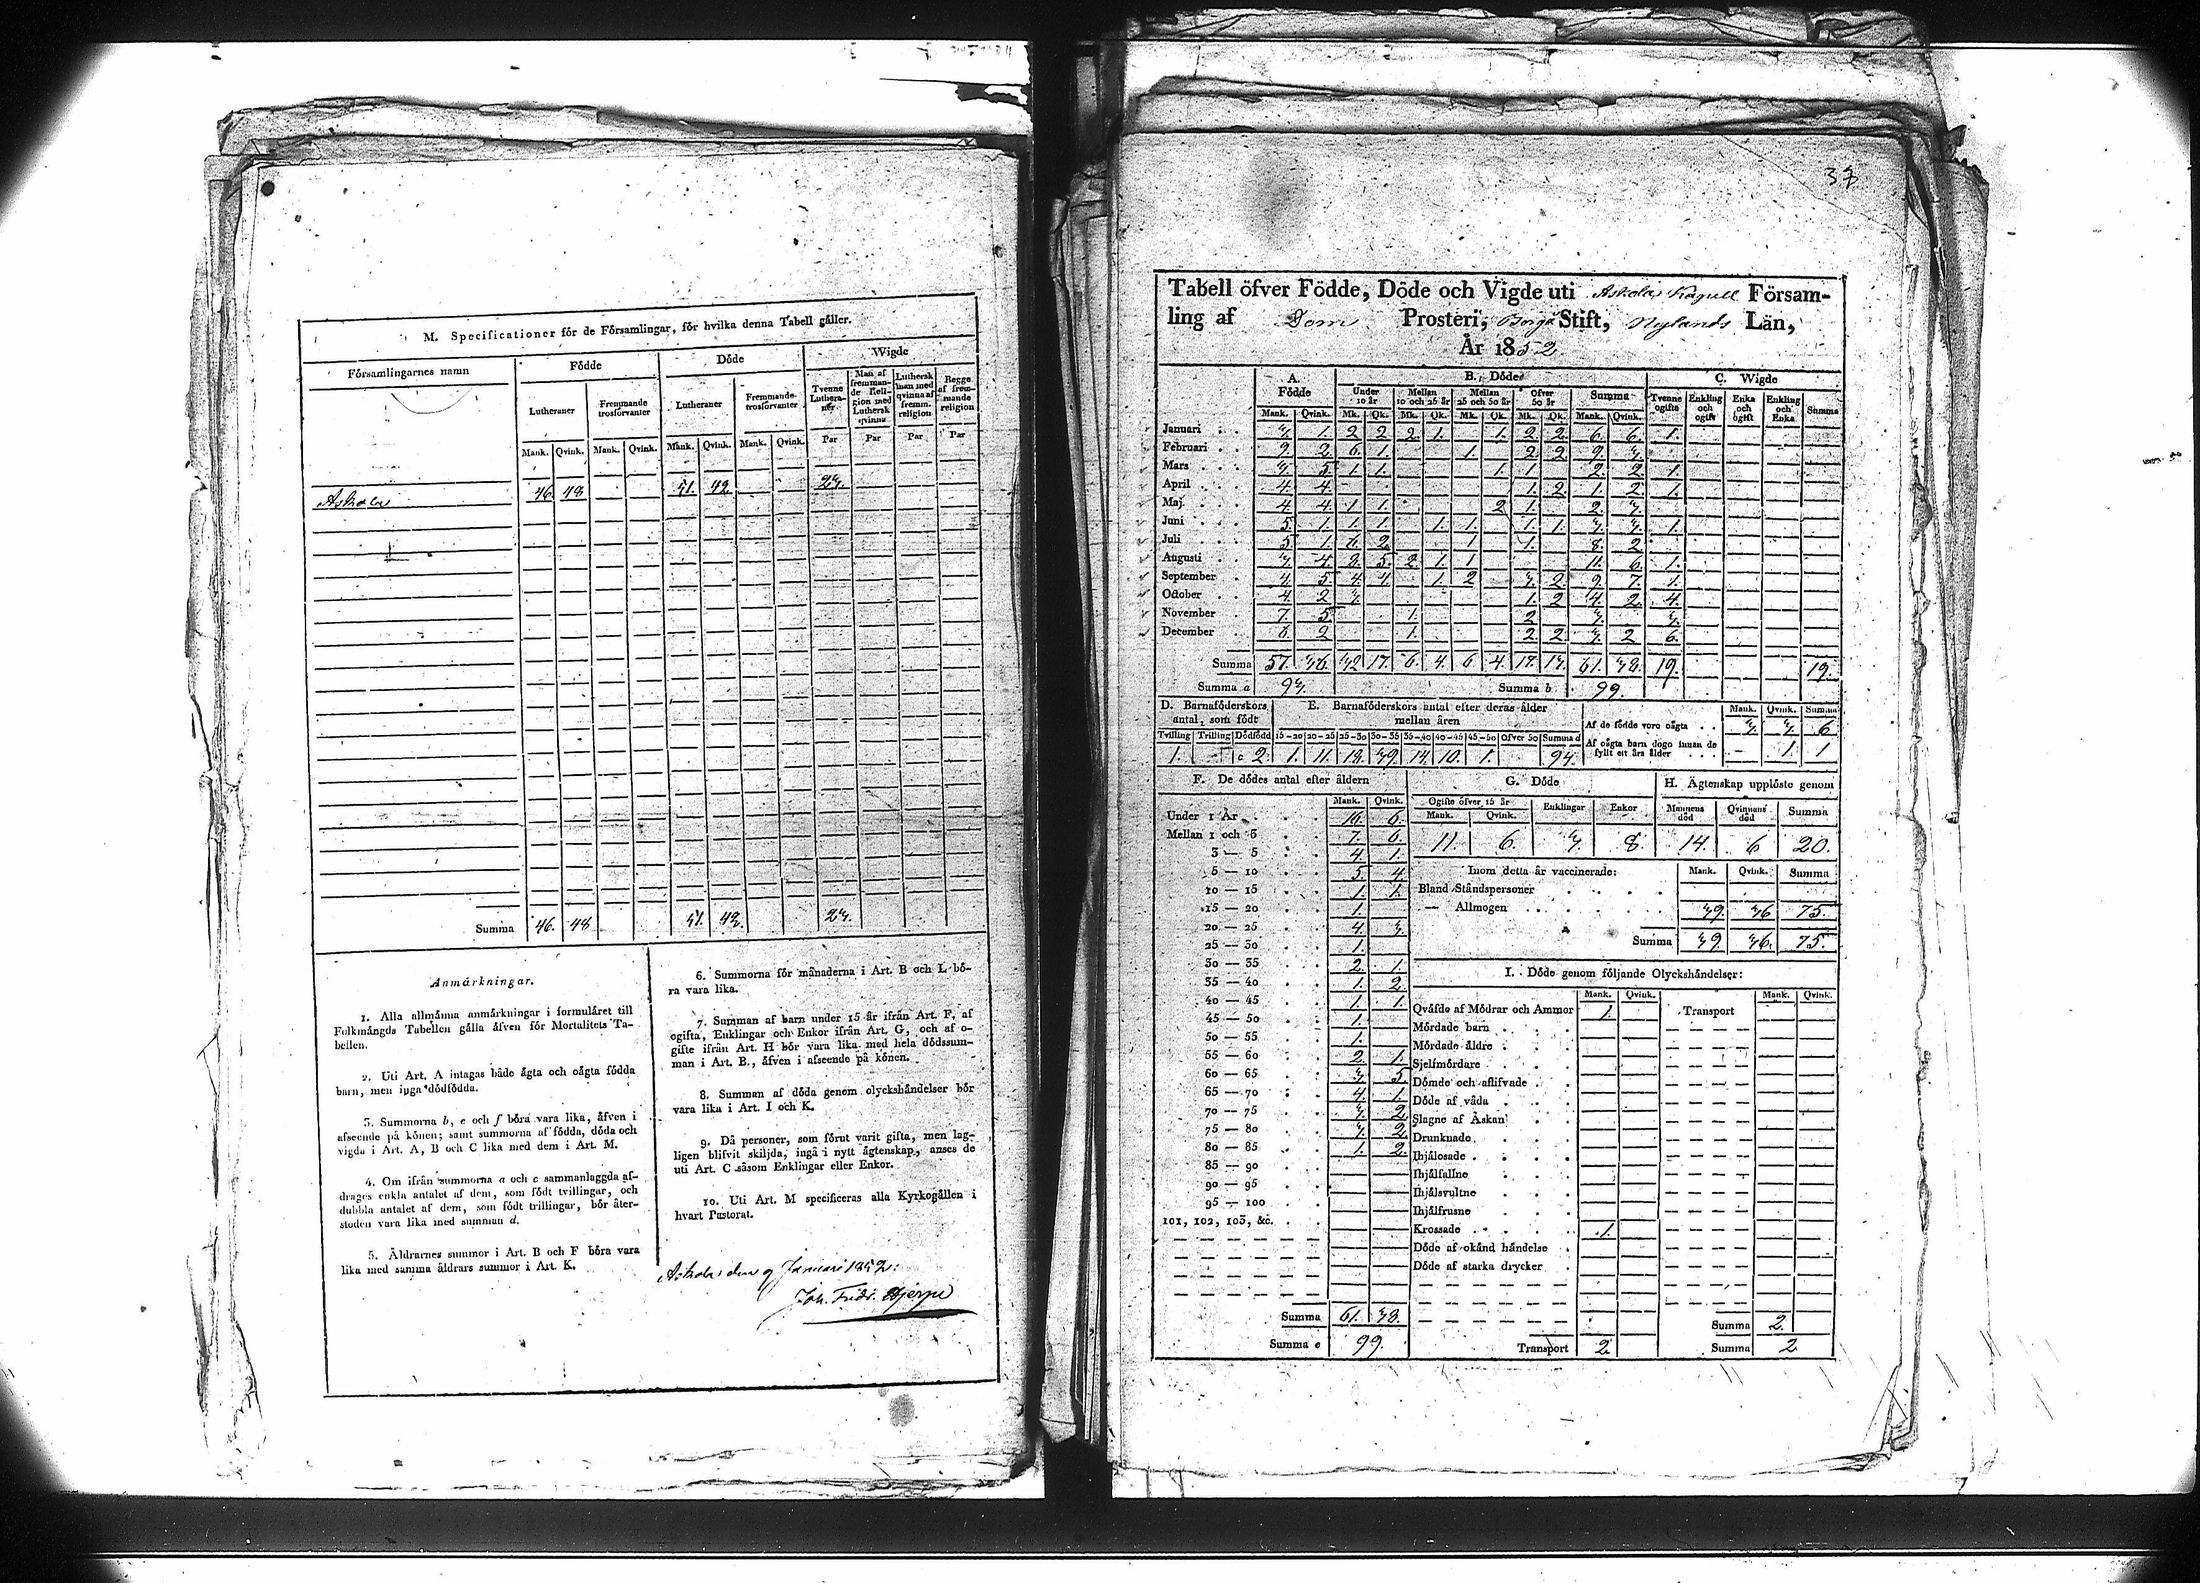 M. Specificationer för de Församlingar, för hvilka denna Tabell gäller.
Församlingarnes namn
Födde
Döde
Wigde
Lutheraner
Fremmande trosförvanter
Lutheraner
Fremmande trosförvanter
Tvenne Lutheraner
Man af fremmande Religion med Luthersk qvinna
Luthersk man med qvinna af fremm. religion
Begge af fremmande religion
Mank. Qvink. Mank. Qvink. Mank. Qvink. Mank. Qvink. Par Par Par Par
Askola 46. 48 51. 42. 23.
Summa 46. 48 51. 42. 23.
Anmärkningar.
1. Alla allmänna anmärkningar i formuläret till
Folkmängds Tabellen gälla äfven för Mortalitets Ta-
bellen.
2. Uti Art. A intagas både ägta och oägta födda
barn, men inga dödfödda.
3. Summorna b, e och f böra vara lika, äfven i
afseende på könen; samt summorna af födda, döda och
vigda i Art. A, B och C lika med dem i Art. M.
4. Om ifrån summorna a och c sammanlaggda af-
drages enkla antalet af dem, som födt tvillingar, och
dubbla antalet af dem, som födt trillingar, bör åter-
stoden vara lika med summan d.
5. Åldrarnes summor i Art. B och F böra vara
lika med samma åldrars summor i Art. K.
6. Summorna för månaderna i Art. B och L bö-
ra vara lika.
7. Summan af barn under 15 år ifrån Art. F, af
ogifta, Enklingar och Enkor ifrån Art. G, och af o-
gifte ifrån Art. H bör vara lika med hela dödssum-
man i Art. B., äfven i afseende på könen.
8. Summan af döda genom olyckshändelser bör
vara lika i Art. I och K.
9. Då personer, som förut varit gifta, men lag-
ligen blifvit skiljda, ingå i nytt ägtenskap, anses de
uti Art. C såsom Enklingar eller Enkor.
10. Uti Art. M specificeras alla Kyrkogällen i
hvart Pastorat.
Askola den 9 Januari 1852.
Joh. Fridr.
37
Tabell öfver Födde, Döde och Vigde uti Askola Kapell Försam-
ling af Dom Prosteri, Borgå Stift, Nylands Län,
År 1852
A. Födde
B. Döde
C. Wigde
Under 10 år
Mellan 10 och 25 år
Mellan 25 och 50 år
Öfver 50 år
Summa
Tvenne ogifte
Enkling och ogift
Enka och ogift
Enkling och Enka
Summa
Mank. Qvink. Mk. Qk. Mk. Qk. Mk. Qk. Mk. Qk. Mank. Qvink.
Januari 3. 1. 2 2 2. 1. 1. 2. 2. 6. 6. 1.
Februari 9. 2 6. 1. 1. 2 2. 9. 3.
Mars 3. 5 1. 1. 1. 1. 2. 2 1.
April 4. 4. 1. 2. 1. 2. 1.
Maj 4 4. 1 1. 2 1. 2 3.
Juni 5. 1. 1. 1. 1. 1. 1. 1. 3. 3. 1.
Juli 5. 1. 6. 2. 1 1. 8. 2
Augusti 3. 4. 8. 5. 2 1. 1 11. 6. 1.
September 4. 5. 4. 4. 1. 2 3. 2. 9. 7. 1.
October 4. 2 3. 1. 2 4. 2. 4.
November 7. 5. 1. 2 3. 3.
December 6. 2 1. 2. 2. 3. 2 6.
Summa 57. 36. 32. 17. 6. 4. 6 4. 17. 13. 61. 38. 19. 19.
Summa a 93.
Summa b 99.
D. Barnaföderskors antal, som födt
E. Barnaföderskors antal efter deras ålder mellan åren
Tvilling Trilling Dödfödd 15-20 20-25 25-30 30-35 35-40 40-45 45-50 Öfver 50 Summa d
1. c 2. 1. 11. 18. 39. 14. 10. 1. 94.
Mank. Qvink. Summa
Af de födde voro oägta 3. 3. 6
Af oägta barn dogo innan de fyllt ett års ålder - 1. 1
F. De dödes antal efter åldern
Mank. Qvink.
Under 1 År 16. 6.
Mellan 1 och 3 7. 6.
3 — 5 4. 1.
5 — 10 5. 4.
10 — 15 1. 1.
15 — 20 1.
20 — 25 4. 3.
25 — 30 1.
30 — 35 2. 1.
35 — 40 1. 2
40 — 45 1. 1.
45 — 50 1.
50 — 55 1.
55 — 60 2. 1.
60 — 65 3. 5.
65 — 70 4. 1.
70 — 75 3. 2.
75 — 80 3. 2.
80 — 85 1. 2.
85 — 90
90 — 95
95 — 100
101, 102, 103, &c.
Summa 61. 38.
Summa e 99.
G. Döde
Ogifte öfver 15 år
Enklingar
Enkor
Mank. Qvink.
11. 6. 3. 8.
H. Ägtenskap upplöste genom
Mannens död
Qvinnans död
Summa
14. 6 20.
Inom detta år vaccinerade:
Mank. Qvink. Summa
Bland Ståndspersoner
— Allmogen 39. 36 75.
Summa 39. 36. 75.
I. Döde genom följande Olyckshändelser:
Mank. Qvink. Mank. Qvink.
Qväfde af Mödrar och Ammor 1. Transport
Mördade barn
Mördade äldre
Sjelfmördare
Dömde och aflifvade
Döde af våda
Slagne af Åskan
Drunknade
Ihjälosade
Ihjälfallne
Ihjälsvultne
Ihjälfrusne
Krossade 1.
Döde af okänd händelse
Döde af starka drycker
Summa 2.
Transport 2. Summa 2